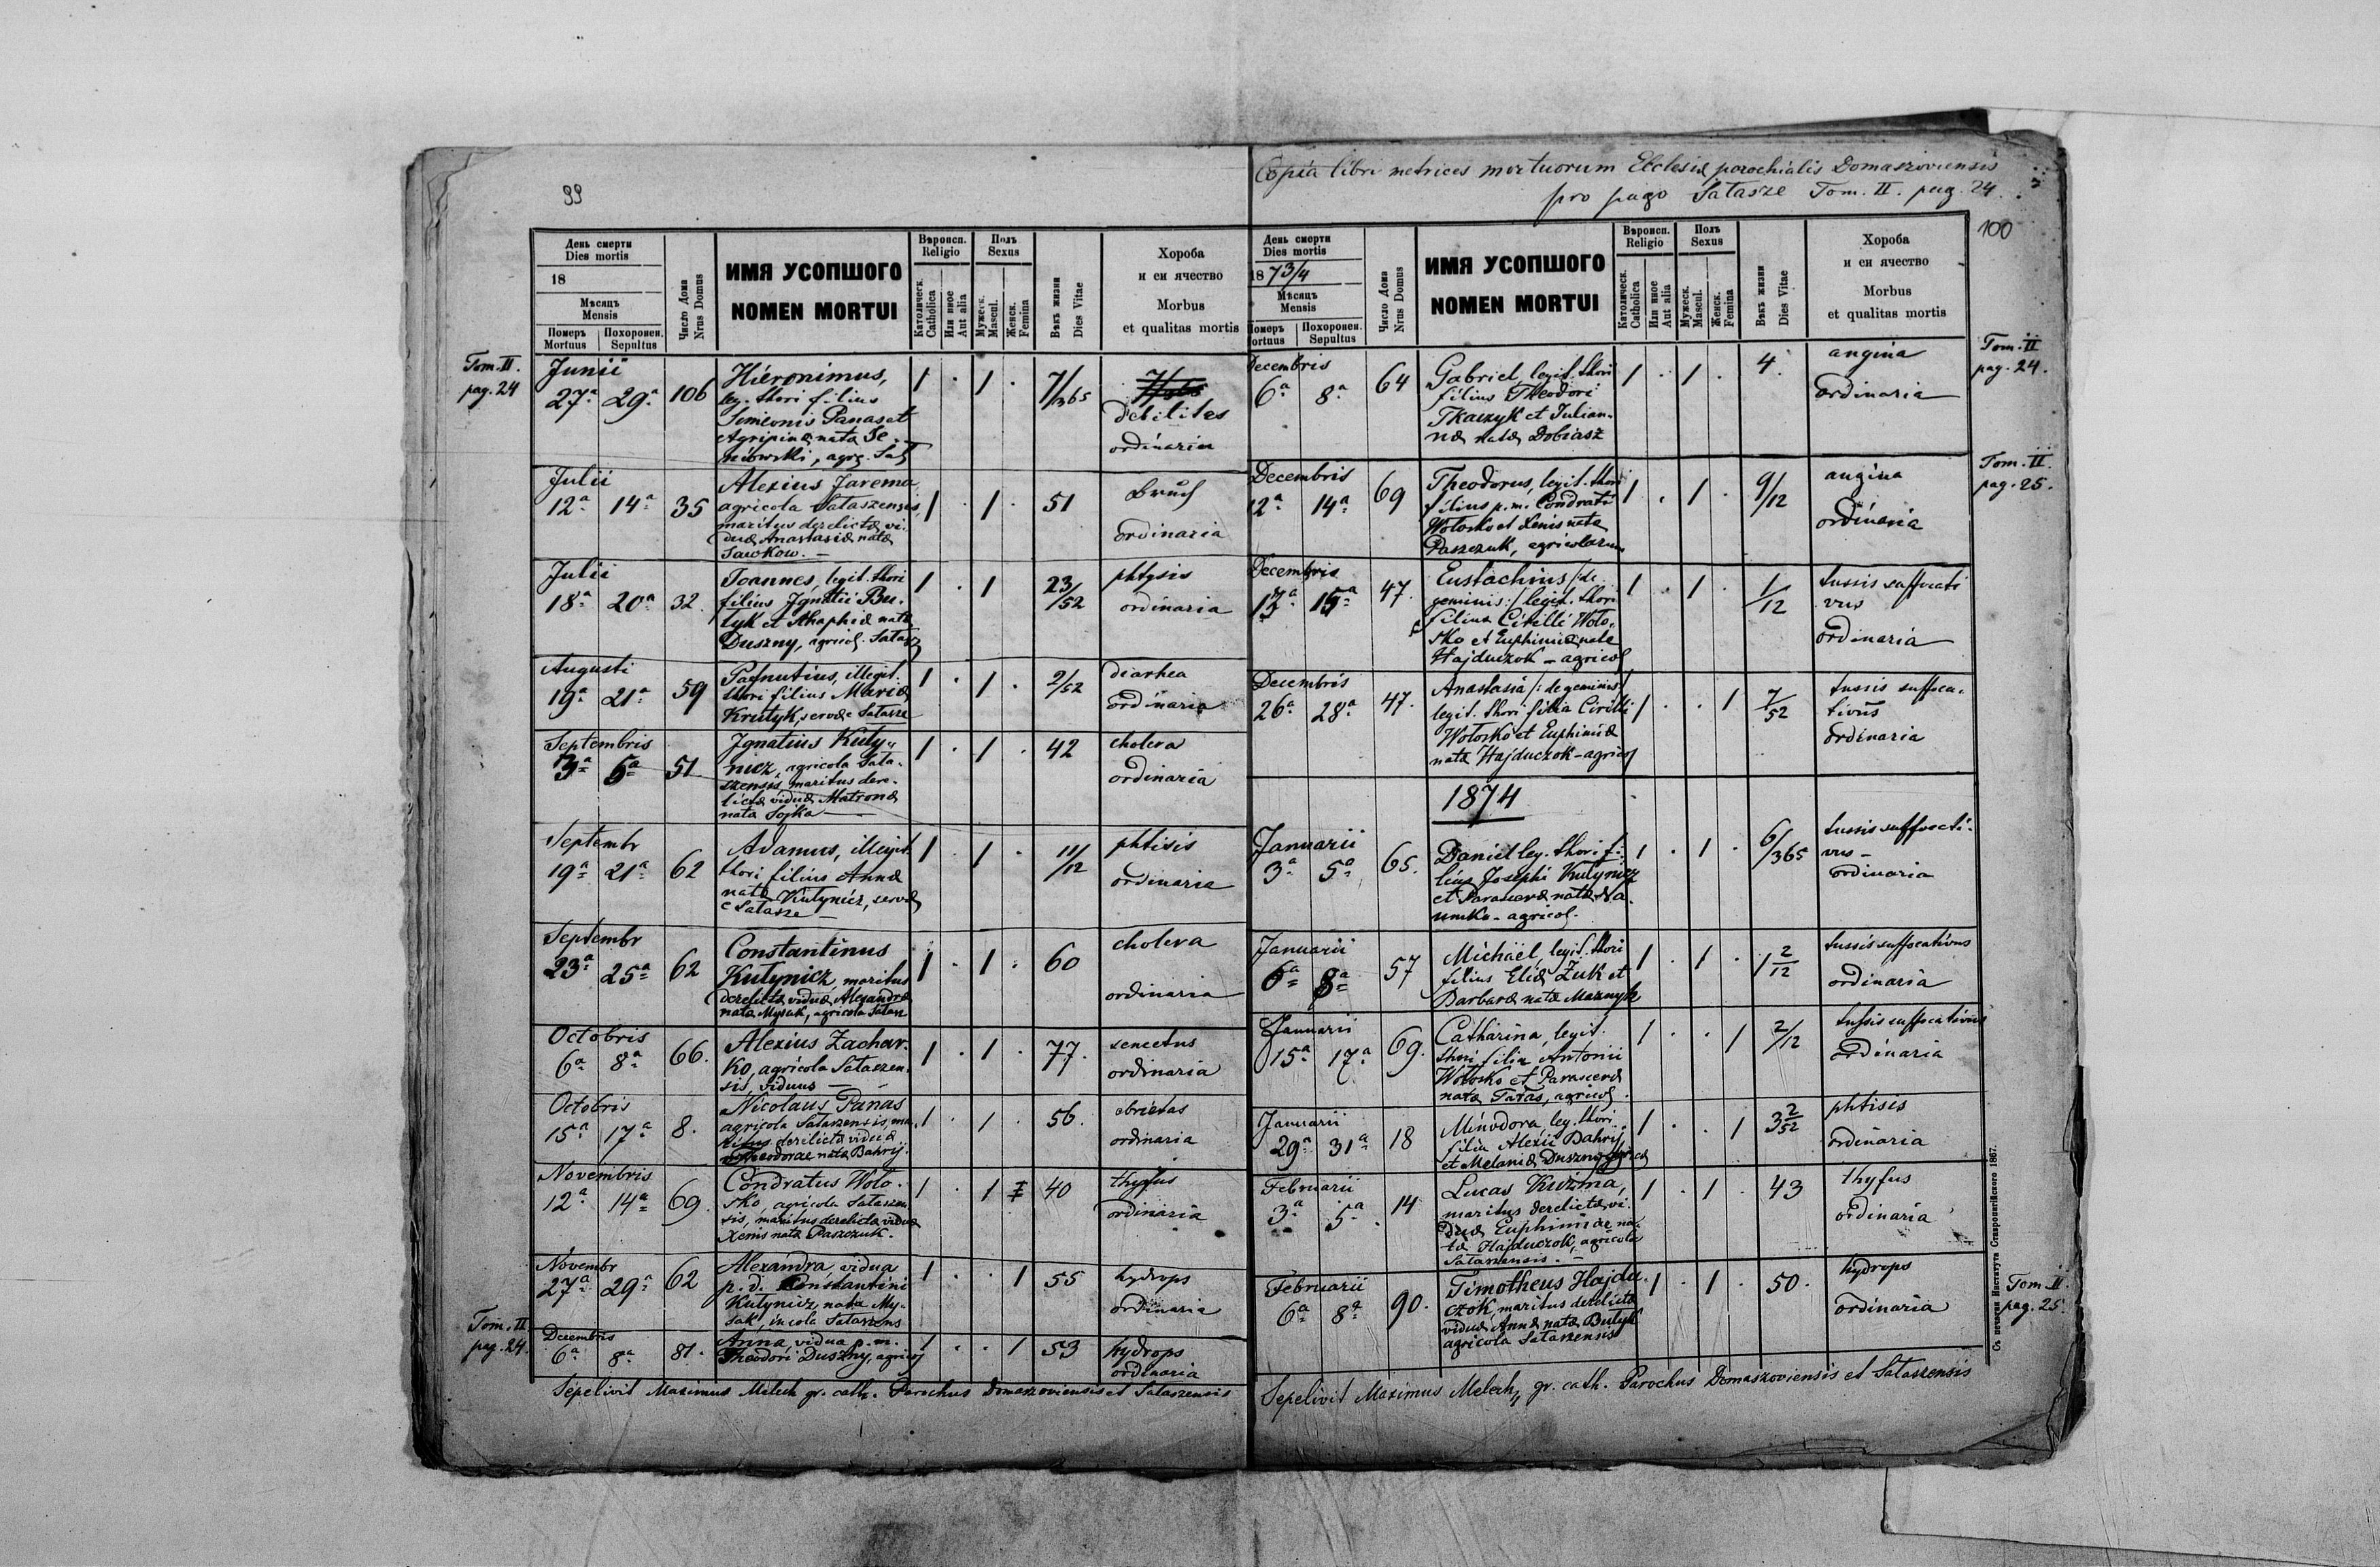 99
День смерти
Dies mortis
18
Мѣсяць
Mensis
Померъ
Mortuus
Похоронен.
Sepultus
Число Дома
Nrus Domus
ИМЯ УСОПШОГО
NOMEN MORTUI
Вѣроисп.
Religio
Католическ.
Catholica
Или иное
Aut alia
Полъ
Sexus
Мужеск.
Mascul.
Женск.
Femina
Вѣкъ жизни
Dies Vitae
Хороба
и еи ячество
Morbus
et qualitas mortis
Tom. II.
pag. 24
Junii
27ª 29ª 106
Hieronimus,
leg. thori filius
Simeonis Panas et
Agripina nata Se-
niowski, agr. Sat
1 . 1 . 7/365
debilitas
ordinaria
Julii
12ª 14ª 35
Alexius Jarema
agricola Sataszensis,
maritus derelictæ vi-
duæ Anastasiæ natæ
Sawkow. —
1 . 1 . 51
ordinaria
Julii
18ª 20ª 32.
Joannes, legit. thori
filius Ignatii Bu-
tyk et Ahaphiæ natæ
Duszny, agricol. Satasz
1 . 1 23/52
phtysis
ordinaria
Augusti
19ª 21ª 59
Pafnutius, illegit.
thori filius Mariæ
Krutyk, servæ e Satasze
1 . 1 . 2/52
diarhea
ordinaria
Septembris
3ª 5ª 51
Ignatius Kuty-
nicz, agricola Sata-
szensis, maritus dere-
lictæ viduæ Matronæ
nata Sojka —
1 . 1 . 42
cholera
ordinaria
Septembr
19ª 21ª 62
Adamus, illegit.
thori filius Annæ
natæ Kutynicz, servæ
e Satasze —
1 . 1 . 11/12
phtisis
ordinaria
Septembr
23ª 25ª 62
Constantinus
Kutynicz, maritus
derelictæ viduæ Alexandræ
nata Mysak, agricola Satasz
1 . 1 . 60
cholera
ordinaria
Octobris
6ª 8ª 66.
Alexius Zachar-
ko, agricola Sataszen-
sis, viduus —
1 . 1 . 77.
senectus
ordinaria
Octobris
15ª 17ª 8.
Nicolaus Panas
agricola Sataszensis, ma-
ritus derelictæ viduæ
Theodorae natæ Bahrij.
1 . 1 . 56.
ebrietas
ordinaria
Novembris
12ª 14ª 69.
Condratus Woło-
sko, agricola Sataszen-
sis, maritus derelictæ viduæ
Xenis natæ Paszczuk.
1 . 1 40
thyfus
ordinaria
Novembr
27ª 29ª 62
Alexandra, vidua
p. d. Constantini
Kutynicz, nata My-
sak, incola Sataszens
1 . . 1 55
hydrops
ordinaria
Tom. II.
pag. 24.
Decembris
6ª 8ª 81.
Anna, vidua p. m.
Theodori Duszny, agricol
1 . . 1 53
hydrops
ordinaria
Sepelivit Maximus Melech gr. cath. Parochus Domaszoviensis et Sataszensis
Copia libri metrices mortuorum Ecclesiæ parochialis Domaszoviensis
pro pago Satasze Tom. II. pag. 24.
100
День смерти
Dies mortis
1873/4
Мѣсяць
Mensis
Померъ
ortuus
Похоронен.
Sepultus
Число Дома
Nrus Domus
ИМЯ УСОПШОГО
NOMEN MORTUI
Вѣроисп.
Religio
Католическ.
Catholica
Или иное
Aut alia
Полъ
Sexus
Мужеск.
Mascul.
Женск.
Femina
Вѣкъ жизни
Dies Vitae
Хороба
и еи ячество
Morbus
et qualitas mortis
Tom. II
pag. 24.
Decembris
6ª 8ª 64
Gabriel, legit. thori
filius Theodori
Tkaczyk et Julian-
næ natæ Dobiasz
1 . 1 . 4.
angina
ordinaria
Tom. II.
pag. 25.
Decembris
12ª 14ª 69
Theodorus, legit. thori
filius p. m. Condrati
Wołosko et Xenis nata
Paszczuk, agricolarum
1 . 1 . 9/12
angina
ordinaria
Decembris
13ª 15ª 47.
Eustachius /: de
geminis :/ legit. thori
filius Cirilli Woło-
sko et Euphimiæ nata
Hajduczok – agricol
1 . 1 . 1/12
tussis suffocati
vus
ordinaria
Decembris
26ª 28ª 47.
Anastasia /: de geminis :/
legit. thori filia Cirilli
Wołosko et Euphimiæ
nata Hajduczok – agricol
1 . . 1 7/52
tussis suffoca-
tivus
ordinaria
1874
Januarii
3ª 5ª 65.
Daniel leg. thori fi-
lius Josephi Kutynicz
et Parascevæ natæ Na-
umko – agricol.
1 . 1 . 6/365
tussis suffocati-
vus –
ordinaria
Januarii
6ª 8ª 57
Michäel, legit. thori
filius Eliæ Żuk et
Barbaræ natæ Maznyk
1 . 1 . 1 2/12
tussis suffocativus
ordinaria
Januarii
15ª 17ª 69.
Catharina, legit.
thori filia Antonii
Wołosko et Parascevæ
natæ Taras, agricol.
1 . . 1 2/12
tussis suffocativus
ordinaria
Januarii
29ª 31ª 18
Minodora, leg. thori
filia Alexii Bahrij
et Melaniæ Duszny agricol
1 . . 1 3 2/52
phtisis
ordinaria
Februarii
3ª 5ª 14
Lucas Kuzma,
maritus derelictæ vi-
duæ Euphimiae na-
tæ Hajduczok, agricola
Sataszensis –
1 . 1 . 43
thyfus
ordinaria
Februarii
6ª 8ª 90.
Timotheus Hajdu-
czok, maritus derelictæ
viduæ Annæ natæ Butyk
agricola Sataszensis
1 . 1 . 50.
hydrops
ordinaria
Tom. II.
pag. 25.
Sepelivit Maximus Melech, gr. cath. Parochus Domaszoviensis et Sataszensis
Съ печатни Института Ставропигійского 1867.